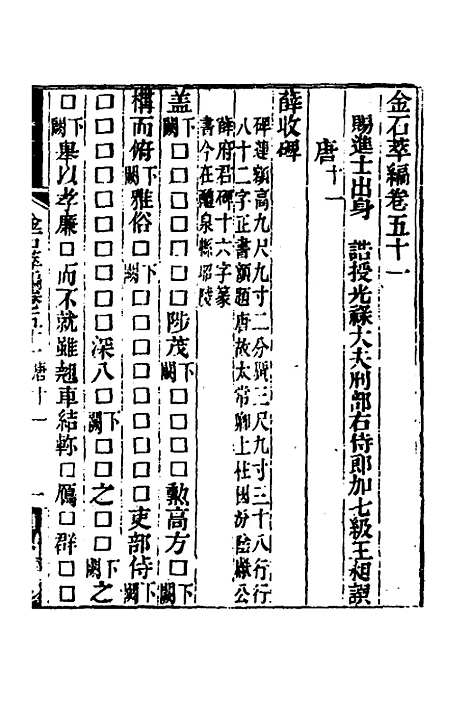 金石萃編卷五十一
賜進士出身 誥授光祿大夫刑部右侍郎加七級王昶譔
唐十一
薛收碑
碑連額高九尺九寸二分廣三尺九寸三十八行行
八十二字正書額題唐故太常卿上柱國汾陰縣公
薛府君碑十六字篆
書今在醴泉縣昭陵
盖下闕□□□□□陟茂下闕□□□□勲高方□下闕
構而俯下闕雅俗□下闕□□□□□□□□吏部侍下闕
□□□□□□□□□深八□下闕□□之□□□下闕之
□下闕舉以孝廉□而不就雖翹車結軫□鴈□群□□
金石萃編卷五十一 唐十一 一